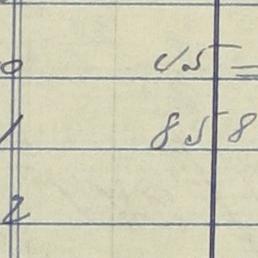 0 45=
1 858
2